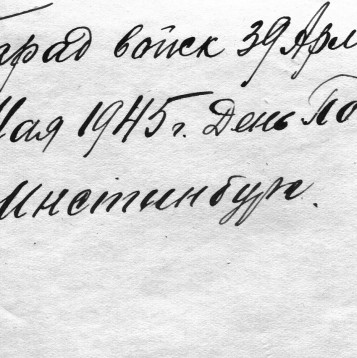 арад войск 39 Арм
Мая 1945 г. День По
Инстинбург.